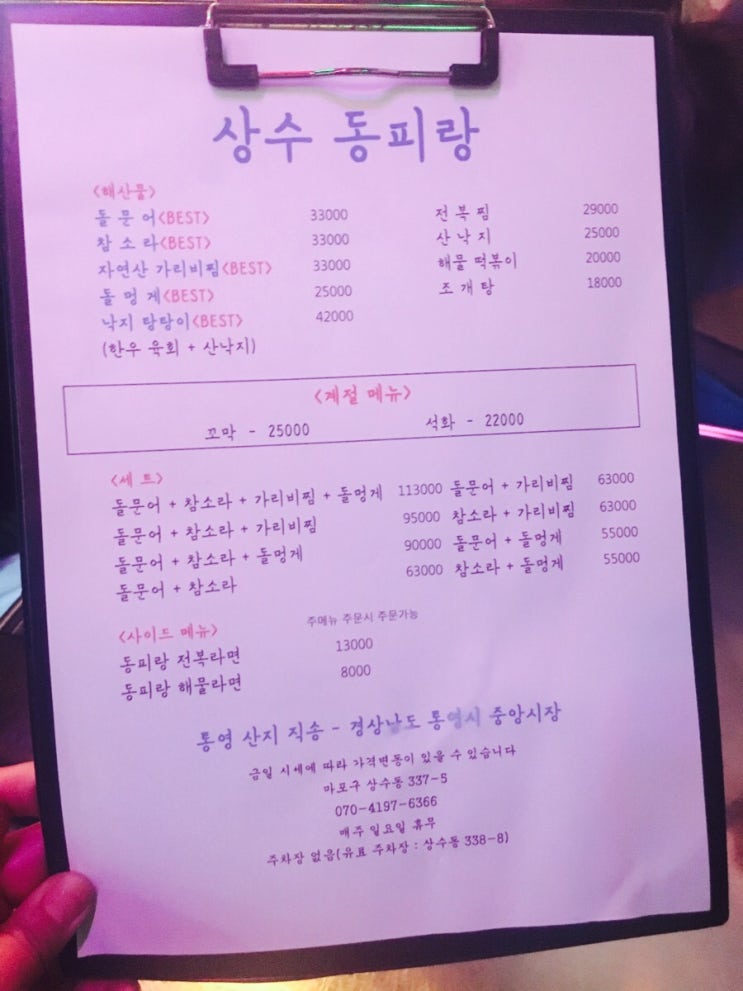 상수 동피랑
<해산물>
돌문어<BEST> 33000
참소라<BEST> 33000
자연산 가리비찜<BEST> 33000
돌멍게<BEST> 25000
낙지 탕탕이<BEST> 42000
(한우 육회 + 산낙지)
전복찜 29000
산낙지 25000
해물 떡볶이 20000
조개탕 18000
<계절 메뉴>
꼬막 - 25000 석화 - 22000
<세트>
돌문어 + 참소라 + 가리비찜 + 돌멍게 113000
돌문어 + 참소라 + 가리비찜 95000
돌문어 + 참소라 + 돌멍게 90000
돌문어 + 참소라 63000
돌문어 + 가리비찜 63000
참소라 + 가리비찜 63000
돌문어 + 돌멍게 55000
참소라 + 돌멍게 55000
<사이드 메뉴> 주메뉴 주문시 주문가능
동피랑 전복라면 13000
동피랑 해물라면 8000
통영 산지 직송 - 경상남도 통영시 중앙시장
금일 시세에 따라 가격변동이 있을 수 있습니다
마포구 상수동 337-5
070-4197-6366
매주 일요일 휴무
주차장 없음(유료 주차장 : 상수동 338-8)